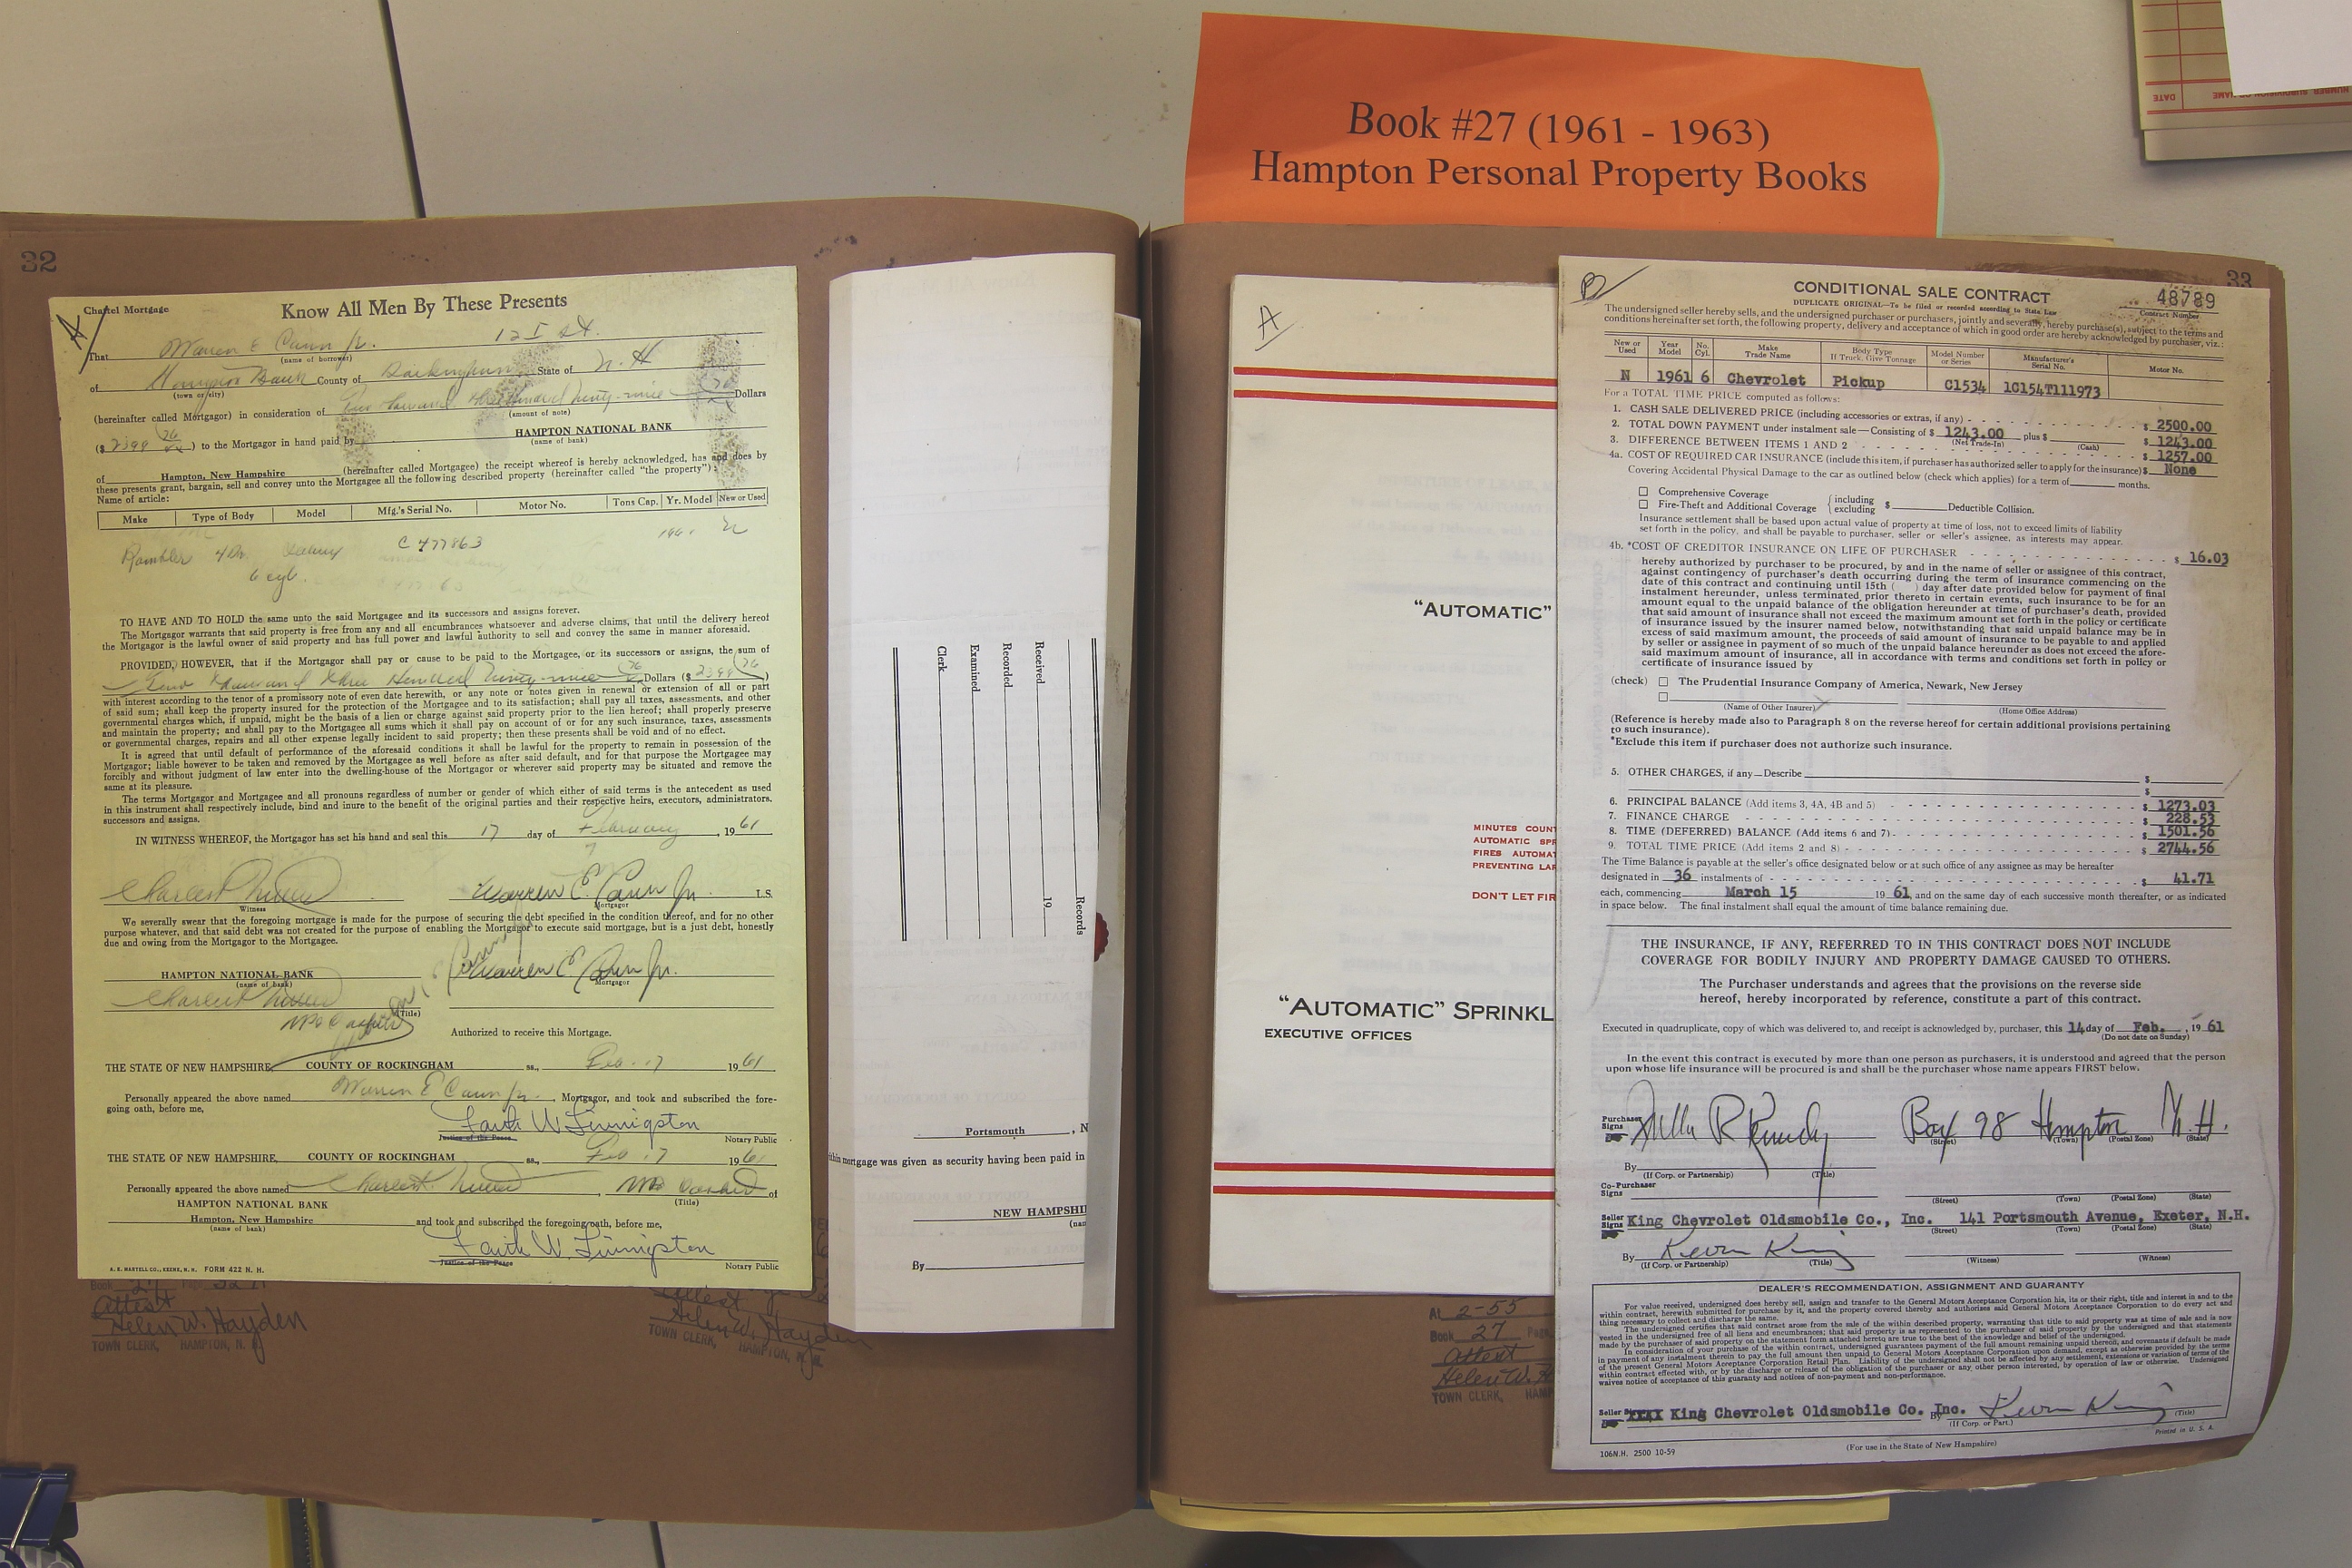 Book #27 (1961 - 1963)
Hampton Personal Property Books
DATE
32
Chattel Mortgage
Know All Men By These Presents
That Warren E Cann Jr. 12 I St.
(name of borrower)
of Hampton Beach County of Rockingham State of N. H
(town or city)
(hereinafter called Mortgagor) in consideration of Two thousand three hundred ninety-nine 76 Dollars
(amount of note)
($ 2399 76) to the Mortgagor in hand paid by HAMPTON NATIONAL BANK
(name of bank)
of Hampton, New Hampshire (hereinafter called Mortgagee) the receipt whereof is hereby acknowledged, has and does by
these presents grant, bargain, sell and convey unto the Mortgagee all the following described property (hereinafter called "the property"):
Name of article:
Make Type of Body Model Mfg.'s Serial No. Motor No. Tons Cap. Yr. Model New or Used
Rambler 4 Dr. C 477863 1961 N
6 cyl.
TO HAVE AND TO HOLD the same unto the said Mortgagee and its successors and assigns forever.
The Mortgagor warrants that said property is free from any and all encumbrances whatsoever and adverse claims, that until the delivery hereof
the Mortgagor is the lawful owner of said property and has full power and lawful authority to sell and convey the same in manner aforesaid.
PROVIDED, HOWEVER, that if the Mortgagor shall pay or cause to be paid to the Mortgagee, or its successors or assigns, the sum of
Two thousand three hundred ninety-nine 76 Dollars ($ 2399 76)
with interest according to the tenor of a promissory note of even date herewith, or any note or notes given in renewal or extension of all or part
of said sum; shall keep the property insured for the protection of the Mortgagee and to its satisfaction; shall pay all taxes, assessments, and other
governmental charges which, if unpaid, might be the basis of a lien or charge against said property prior to the lien hereof; shall properly preserve
and maintain the property; and shall pay to the Mortgagee all sums which it shall pay on account of or for any such insurance, taxes, assessments
or governmental charges, repairs and all other expense legally incident to said property; then these presents shall be void and of no effect.
It is agreed that until default of performance of the aforesaid conditions it shall be lawful for the property to remain in possession of the
Mortgagor; liable however to be taken and removed by the Mortgagee as well before as after said default, and for that purpose the Mortgagee may
forcibly and without judgment of law enter into the dwelling-house of the Mortgagor or wherever said property may be situated and remove the
same at its pleasure.
The terms Mortgagor and Mortgagee and all pronouns regardless of number or gender of which either of said terms is the antecedent as used
in this instrument shall respectively include, bind and inure to the benefit of the original parties and their respective heirs, executors, administrators,
successors and assigns.
IN WITNESS WHEREOF, the Mortgagor has set his hand and seal this 17 day of February, 1961
Warren E. Cann Jr. L.S.
Witness Mortgagor
We severally swear that the foregoing mortgage is made for the purpose of securing the debt specified in the condition thereof, and for no other
purpose whatever, and that said debt was not created for the purpose of enabling the Mortgagor to execute said mortgage, but is a just debt, honestly
due and owing from the Mortgagor to the Mortgagee.
HAMPTON NATIONAL BANK Warren E. Cann Jr.
(name of bank) Mortgagor
(Title)
Authorized to receive this Mortgage.
THE STATE OF NEW HAMPSHIRE, COUNTY OF ROCKINGHAM ss., Feb. 17 1961
Personally appeared the above named Warren E Cann Jr. Mortgagor, and took and subscribed the fore-
going oath, before me, Faith W. Livingston
Justice of the Peace Notary Public
THE STATE OF NEW HAMPSHIRE, COUNTY OF ROCKINGHAM ss., Feb. 17 1961
Personally appeared the above named , of
HAMPTON NATIONAL BANK (Title)
Hampton, New Hampshire and took and subscribed the foregoing oath, before me,
(name of bank)
Faith W. Livingston
Justice of the Peace Notary Public
A. E. MARTELL CO., KEENE, N. H. FORM 422 N. H.
Attest
Helen W. Hayden
TOWN CLERK, HAMPTON, N. H.
Attest
Helen W. Hayden
TOWN CLERK, HAMPTON, N. H.
Clerk
Examined
Recorded
Received
19
Records
Portsmouth , N
mortgage was given as security having been paid in
NEW HAMPSHI
(nan
By
A
"AUTOMATIC"
MINUTES COUN
AUTOMATIC SPR
FIRES AUTOMA
PREVENTING LAR
DON'T LET FIR
"AUTOMATIC" SPRINKL
EXECUTIVE OFFICES
At 2-55
Book 27 Page
Attest
Helen W. H
TOWN CLERK, HAMP
33
B
CONDITIONAL SALE CONTRACT
DUPLICATE ORIGINAL—To be filed or recorded according to State Law
48789
Contract Number
The undersigned seller hereby sells, and the undersigned purchaser or purchasers, jointly and severally, hereby purchase(s), subject to the terms and
conditions hereinafter set forth, the following property, delivery and acceptance of which in good order are hereby acknowledged by purchaser, viz.:
New or Used Year Model No. Cyl. Make Trade Name Body Type If Truck, Give Tonnage Model Number or Series Manufacturer's Serial No. Motor No.
N 1961 6 Chevrolet Pickup C1534 1C154T111973
For a TOTAL TIME PRICE computed as follows:
1. CASH SALE DELIVERED PRICE (including accessories or extras, if any) $ 2500.00
2. TOTAL DOWN PAYMENT under instalment sale—Consisting of $ 1243.00 plus $ $ 1243.00
(Net Trade-In) (Cash)
3. DIFFERENCE BETWEEN ITEMS 1 AND 2 $ 1257.00
4a. COST OF REQUIRED CAR INSURANCE (include this item, if purchaser has authorized seller to apply for the insurance) $ None
Covering Accidental Physical Damage to the car as outlined below (check which applies) for a term of months.
☐ Comprehensive Coverage
☐ Fire-Theft and Additional Coverage { including excluding $ Deductible Collision.
Insurance settlement shall be based upon actual value of property at time of loss, not to exceed limits of liability
set forth in the policy, and shall be payable to purchaser, seller or seller's assignee, as interests may appear.
4b. *COST OF CREDITOR INSURANCE ON LIFE OF PURCHASER $ 16.03
hereby authorized by purchaser to be procured, by and in the name of seller or assignee of this contract,
against contingency of purchaser's death occurring during the term of insurance commencing on the
date of this contract and continuing until 15th ( ) day after date provided below for payment of final
instalment hereunder, unless terminated prior thereto in certain events, such insurance to be for an
amount equal to the unpaid balance of the obligation hereunder at time of purchaser's death, provided
that said amount of insurance shall not exceed the maximum amount set forth in the policy or certificate
of insurance issued by the insurer named below, notwithstanding that said unpaid balance may be in
excess of said maximum amount, the proceeds of said amount of insurance to be payable to and applied
by seller or assignee in payment of so much of the unpaid balance hereunder as does not exceed the afore-
said maximum amount of insurance, all in accordance with terms and conditions set forth in policy or
certificate of insurance issued by
(check) ☐ The Prudential Insurance Company of America, Newark, New Jersey
☐
(Name of Other Insurer) (Home Office Address)
(Reference is hereby made also to Paragraph 8 on the reverse hereof for certain additional provisions pertaining
to such insurance).
*Exclude this item if purchaser does not authorize such insurance.
5. OTHER CHARGES, if any—Describe $
$
6. PRINCIPAL BALANCE (Add items 3, 4A, 4B and 5) $ 1273.03
7. FINANCE CHARGE $ 228.53
8. TIME (DEFERRED) BALANCE (Add items 6 and 7) $ 1501.56
9. TOTAL TIME PRICE (Add items 2 and 8) $ 2744.56
The Time Balance is payable at the seller's office designated below or at such office of any assignee as may be hereafter
designated in 36 instalments of $ 41.71
each, commencing March 15 1961, and on the same day of each successive month thereafter, or as indicated
in space below. The final instalment shall equal the amount of time balance remaining due.
THE INSURANCE, IF ANY, REFERRED TO IN THIS CONTRACT DOES NOT INCLUDE
COVERAGE FOR BODILY INJURY AND PROPERTY DAMAGE CAUSED TO OTHERS.
The Purchaser understands and agrees that the provisions on the reverse side
hereof, hereby incorporated by reference, constitute a part of this contract.
Executed in quadruplicate, copy of which was delivered to, and receipt is acknowledged by, purchaser, this 14 day of Feb., 1961
(Do not date on Sunday)
In the event this contract is executed by more than one person as purchasers, it is understood and agreed that the person
upon whose life insurance will be procured is and shall be the purchaser whose name appears FIRST below.
Purchaser Signs Box 98 Hampton N. H.
(Street) (Town) (Postal Zone) (State)
By
(If Corp. or Partnership) (Title)
Co-Purchaser Signs
(Street) (Town) (Postal Zone) (State)
Seller Signs King Chevrolet Oldsmobile Co., Inc. 141 Portsmouth Avenue, Exeter, N.H.
(Street) (Town) (Postal Zone) (State)
By Kevin King
(If Corp. or Partnership) (Title) (Witness) (Witness)
DEALER'S RECOMMENDATION, ASSIGNMENT AND GUARANTY
For value received, undersigned does hereby sell, assign and transfer to the General Motors Acceptance Corporation his, its or their right, title and interest in and to the
within contract, herewith submitted for purchase by it, and the property covered thereby and authorizes said General Motors Acceptance Corporation to do every act and
thing necessary to collect and discharge the same.
The undersigned certifies that said contract arose from the sale of the within described property, warranting that title to said property was at time of sale and is now
vested in the undersigned free of all liens and encumbrances; that said property is as represented to the purchaser of said property by the undersigned and that statements
made by the purchaser of said property on the statement form attached hereto are true to the best of the knowledge and belief of the undersigned.
In consideration of your purchase of the within contract, undersigned guarantees payment of the full amount remaining unpaid thereon, and covenants if default be made
in payment of any instalment therein to pay the full amount then unpaid to General Motors Acceptance Corporation upon demand, except as otherwise provided by the terms
of the present General Motors Acceptance Corporation Retail Plan. Liability of the undersigned shall not be affected by any settlement, extension or variation of terms of the
within contract effected with, or by the discharge or release of the obligation of the purchaser or any other person interested, by operation of law or otherwise. Undersigned
waives notice of acceptance of this guaranty and notices of non-payment and non-performance.
Seller Signs XXXX King Chevrolet Oldsmobile Co. Inc. By Kevin King (Title)
(If Corp. or Part.)
106N.H. 2500 10-59
(For use in the State of New Hampshire)
Printed in U. S. A.